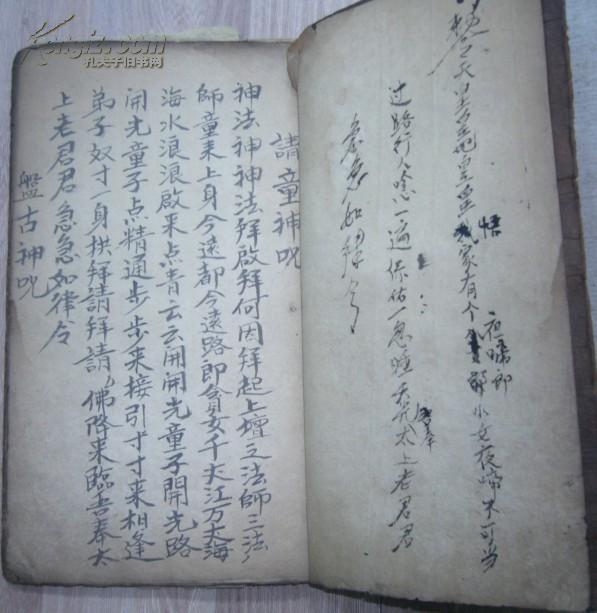 天皇皇地皇皇我家有个
小女夜啼未可当
悟
夜啼郎
过路行人念一遍保佑一急睡天光太上老君君
吾奉
急急如律令
請童神呪
神法神神法拜啟拜何因拜起上壇之法師三法
師童来上身今遠都今遠路即贪女千丈江万丈海
海水浪浪啟来点青云云開開光童子開光路
開光童子点精通步步来接引寸寸来相逢
弟子奴寸一身拱拜請拜請佛降来臨吾奉太
上老君君急急如律令
盤古神呪
Kongfz.com
孔夫子旧书网